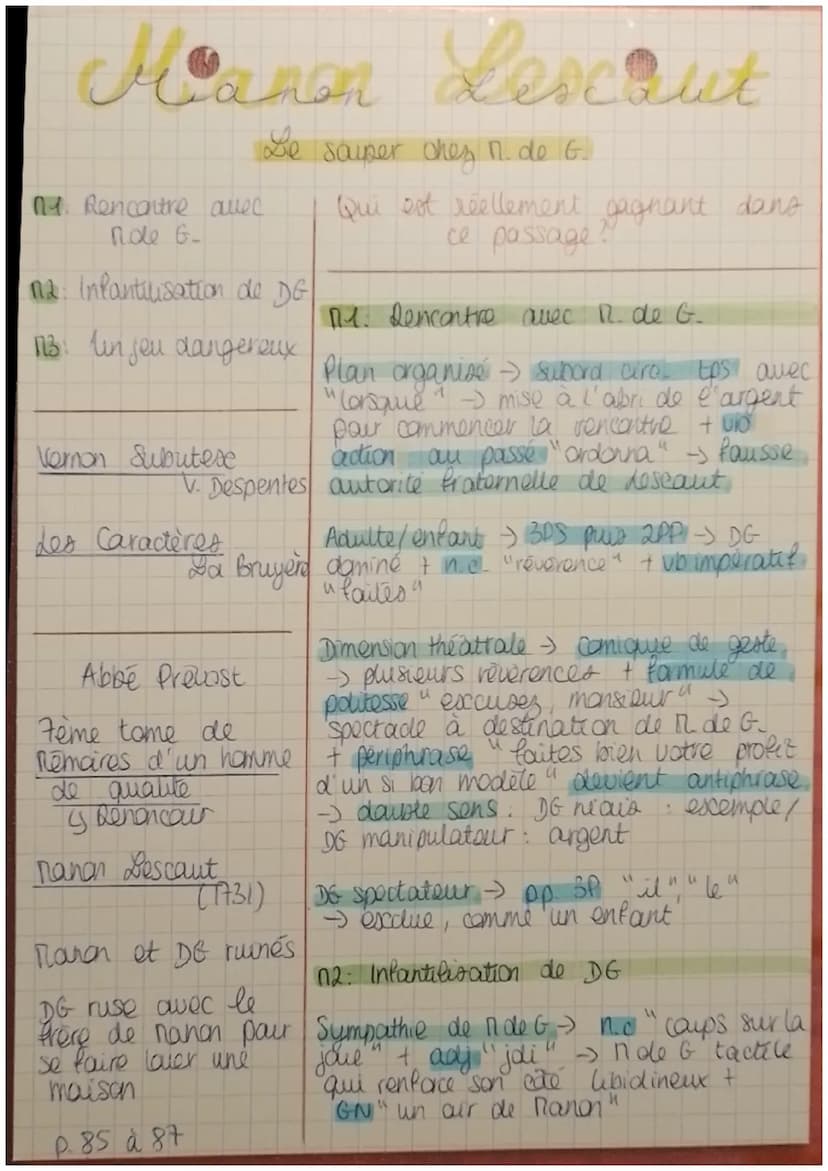 Manon Lescaut
Le souper chez M. de G.
M1: Rencontre avec
M de G-
M2: Infantilisation de DG
M3: Un jeu dangereux
Vernon Subutex
V. Despentes
Les Caractères
La Bruyère
Abbé Prévost
7ème tome de
Mémoires d'un homme
de qualité
↳ Renoncour
Manon Lescaut
(1731)
Manon et DG ruinés
DG ruse avec le
frère de Manon pour
se faire louer une
maison
p. 85 à 87
Qui est réellement gagnant dans
ce passage?
M1: Rencontre avec M. de G.
Plan organisé → subord circ. tps avec
"lorsque" → mise à l'abri de l'argent
pour commencer la rencontre + vb
action au passé "ordonna" → fausse
autorité fraternelle de Lescaut
Adulte/enfant → 3DS puis 2PP → DG
dominé + n.c. "révérence" + vb impératif
"faites"
Dimension théâttrale → comique de geste
→ plusieurs révérences + formule de
politesse "excusez, monsieur" →
spectacle à destination de M. de G.
+ périphrase "faites bien votre profit
d'un si bon modèle" devient antiphrase
→ double sens : DG niais : exemple/
DG manipulateur : argent
DG spectateur → pp. 3P "il", "le"
→ exclue, comme un enfant
M2: Infantilisation de DG
Sympathie de M de G → n.c "coups sur la
joue" + adj "joli" → M de G tactile
qui renforce son côté libidineux +
GN "un air de Manon"